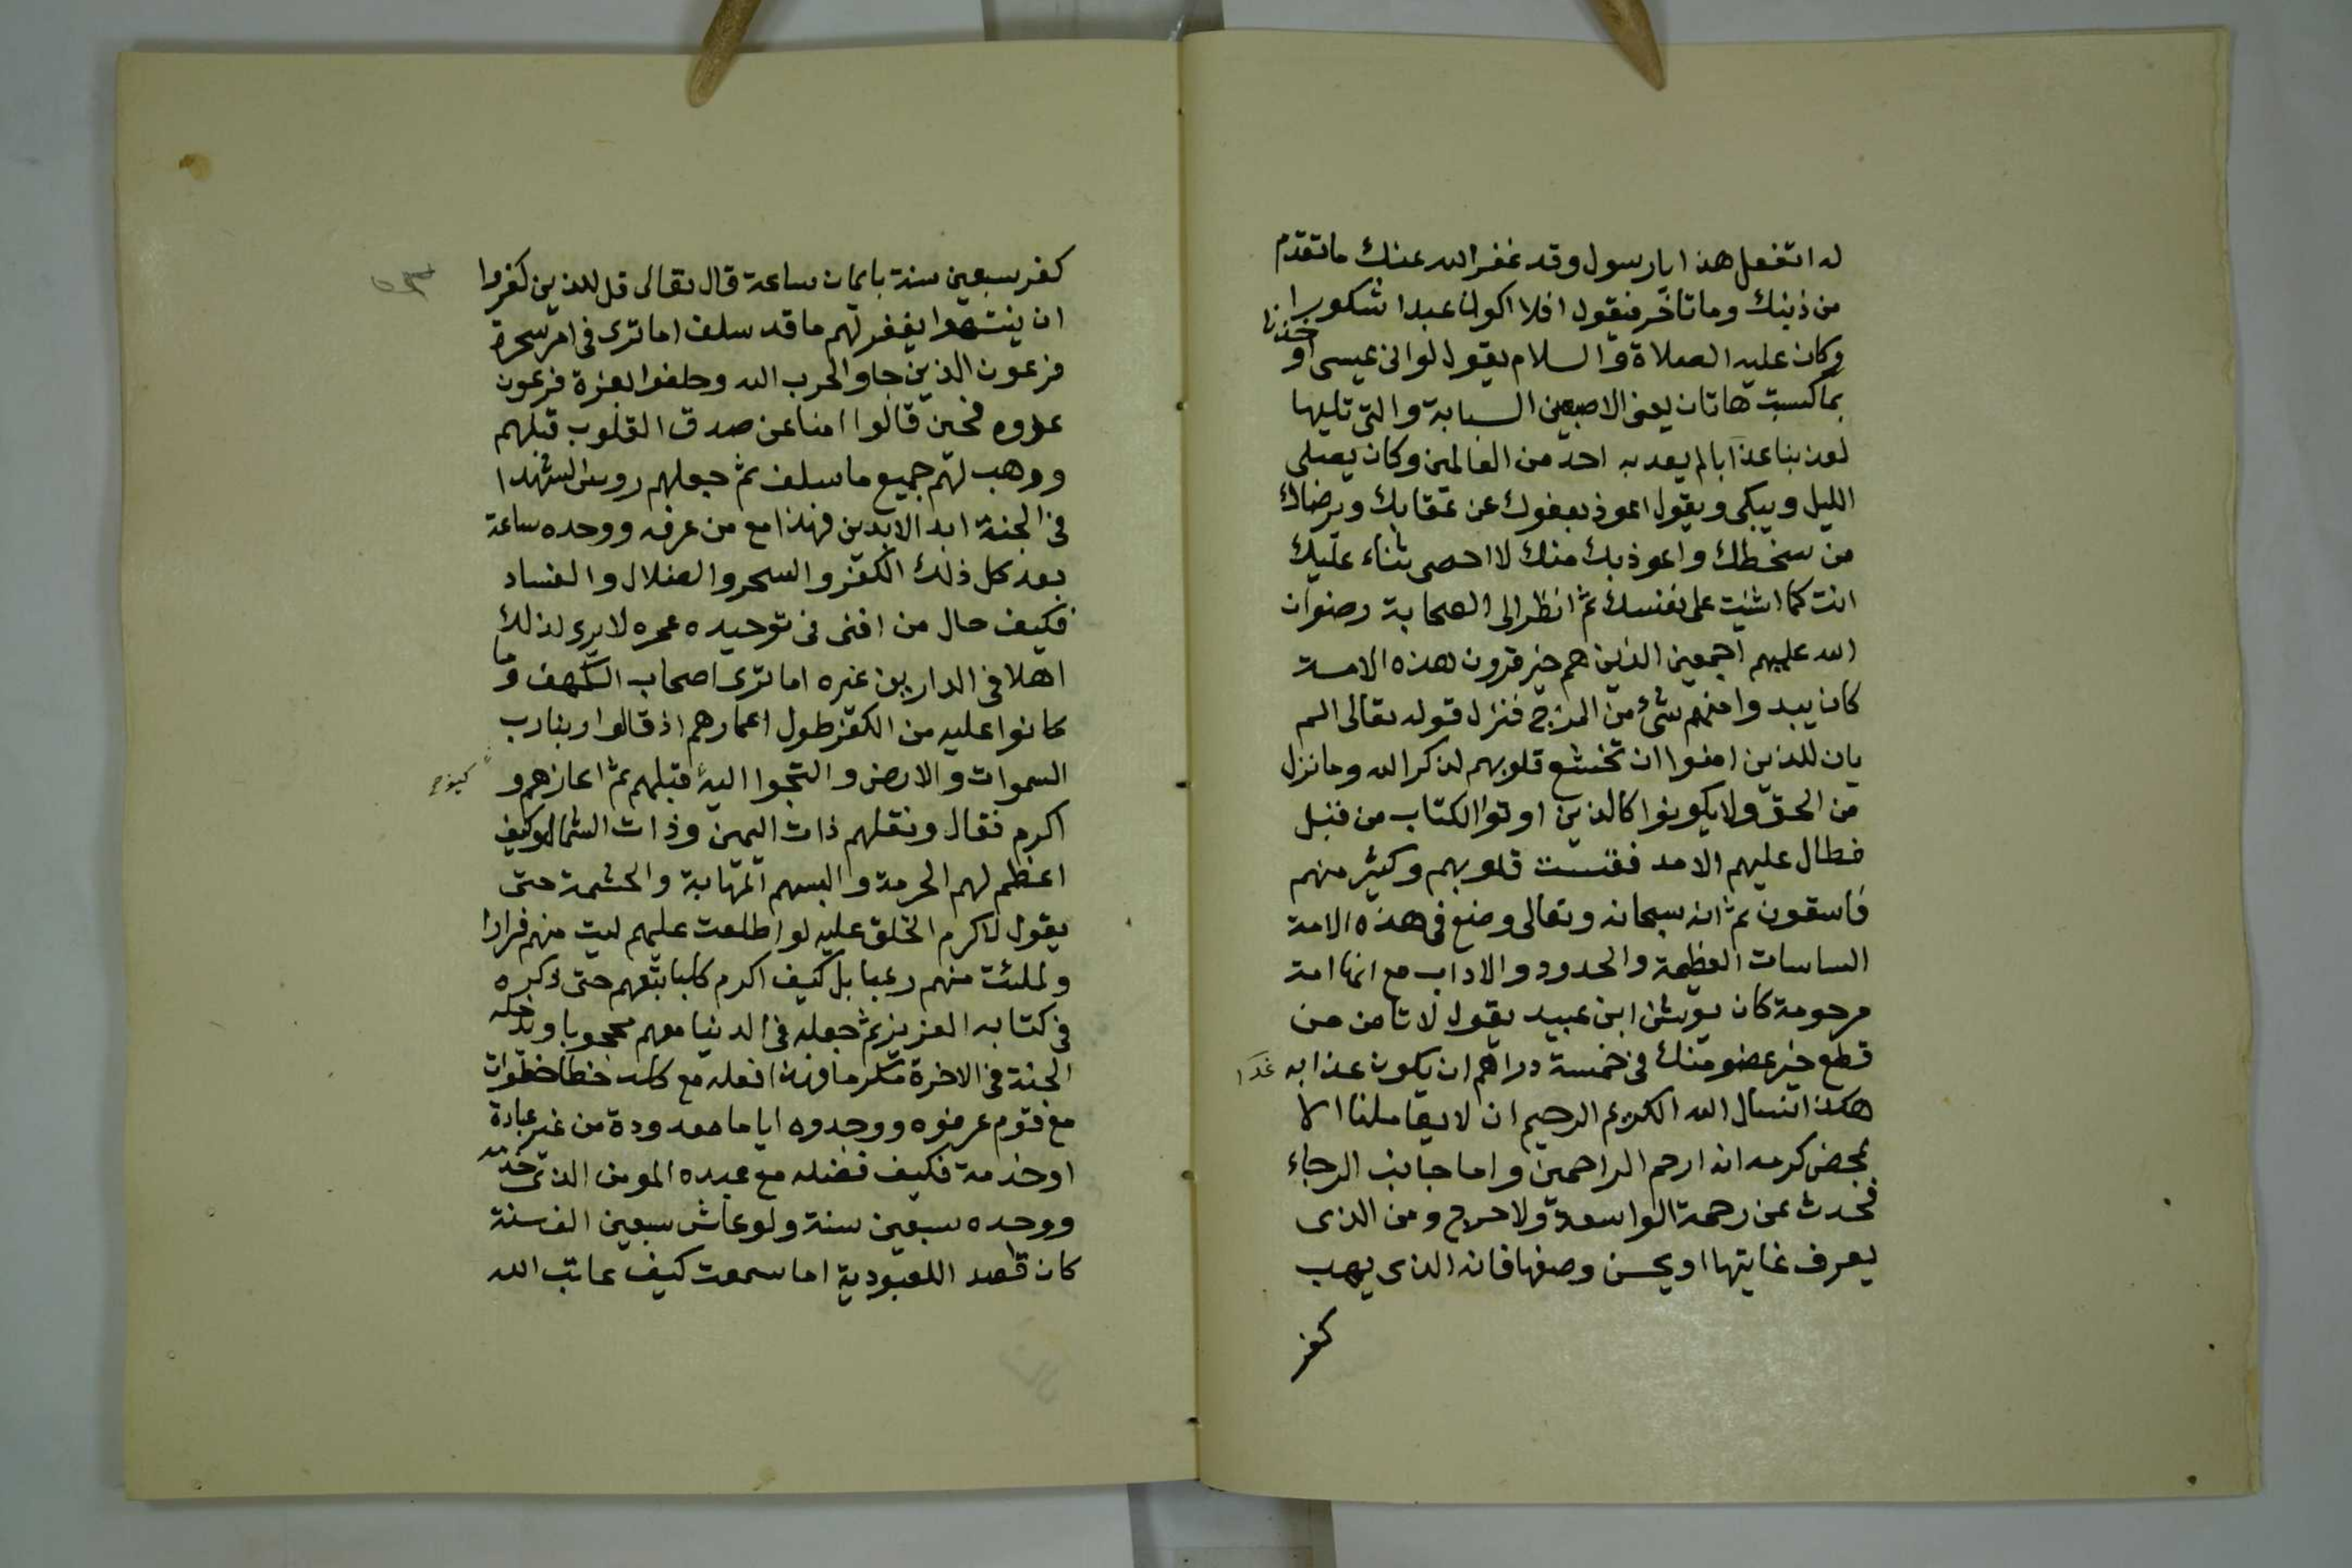 له اتفعل هذا يا رسول وقد غفر الله عنك ما تقدم
من ذنبك وما تأخر فيقول افلا اكون عبدا شكورا
وكان عليه الصلاة والسلام يقول لو انى عيسى اوخذنا
بما كسبت هاتان يعنى الاصبعين السبابة والتى تليها
لعذبنا عذابا لم يعذبه احد من العالمين وكان يصلى
الليل ويبكى ويقول اعوذ بعفوك عن عقابك وبرضاك
من سخطك واعوذ بك منك لا احصى ثناء عليك
انت كما اثنيت على نفسك ثم انظر الى الصحابة رضوان
الله عليهم اجمعين الذين هم خير قرون هذه الامة
كان يبدوا منهم شئ من المزح فنزل قوله تعالى الم
يان للذين امنوا ان تخشع قلوبهم لذكر الله وما نزل
من الحق ولا يكونوا كالذين اوتوا الكتاب من قبل
فطال عليهم الامد فقست قلوبهم وكثير منهم
فاسقون ثم انه سبحانه وتعالى وضع فى هذه الامة
الساسات العظيمة والحدود والاداب مع انها امة
مرحومة كان يونس ابن عبيد يقول لا تامن من
قطع خير عضو منك فى خمسة دراهم ان يكون عذابه غدا
هكذا نسال الله الكريم الرحيم ان لا يعاملنا الا
بمحض كرمه انه ارحم الراحمين واما جانب الرجاء
فحدث عن رحمة الواسعة ولا حرج ومن الذى
يعرف غايتها او يحسن وصفها فانه الذى يهب
كفر
كفر سبعين سنة بايمان ساعة قال تعالى قل للذين كفروا
ان ينتهوا يغفر لهم ما قد سلف اما ترى فى امر سحرة
فرعون الذين جاوا لحرب الله وحلفوا بعزة فرعون
عدوه فحين قالوا امنا عن صدق القلوب قبلهم
ووهب لهم جميع ما سلف ثم جعلهم روس الشهدا
فى الجنة ابد الابدين فهذا مع من عرفه ووحده ساعة
بعد كل ذلك الكفر والسحر والضلال والفساد
فكيف حال من افنى فى توحيده عمره لا يرى لذلك
اهلا فى الدارين غيره اما ترى اصحاب الكهف وما
كانوا عليه من الكفر طول اعمارهم اذ قالوا ربنا رب
السموات والارض والتجوا اليه قبلهم ثم اعازهم و
اكرم فقال ونقلبهم ذات اليمين وذات الشمال وكيف
اعظم لهم الحرمة والبسهم المهابة والحشمة حتى
يقول لاكرم الخلق عليه لو اطلعت عليهم ليت منهم فرارا
ولملئت منهم رعبا بل كيف اكرم كلبا بتعهم حتى ذكره
فى كتابه العزيز ثم جعله فى الدنيا معهم محجوبا ويدخله
الجنة فى الاخرة مكرما فهذا فعله مع كلب خطا خطوات
مع قوم عرفوه ووحدوه اياما معدودة من غير عبادة
او خدمة فكيف فضله مع عبده المومن الذى خدمه
ووحده سبعين سنة ولو عاش سبعين الف سنة
كان قصد اللعبودية اما سمعت كيف عاتب الله